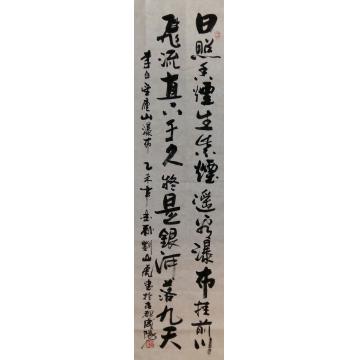 日照香煙生紫煙遙看瀑布挂前川
飛流直下千尺疑是銀河落九天
李白望廬山瀑布 乙未年 劉山虎書於古都咸陽